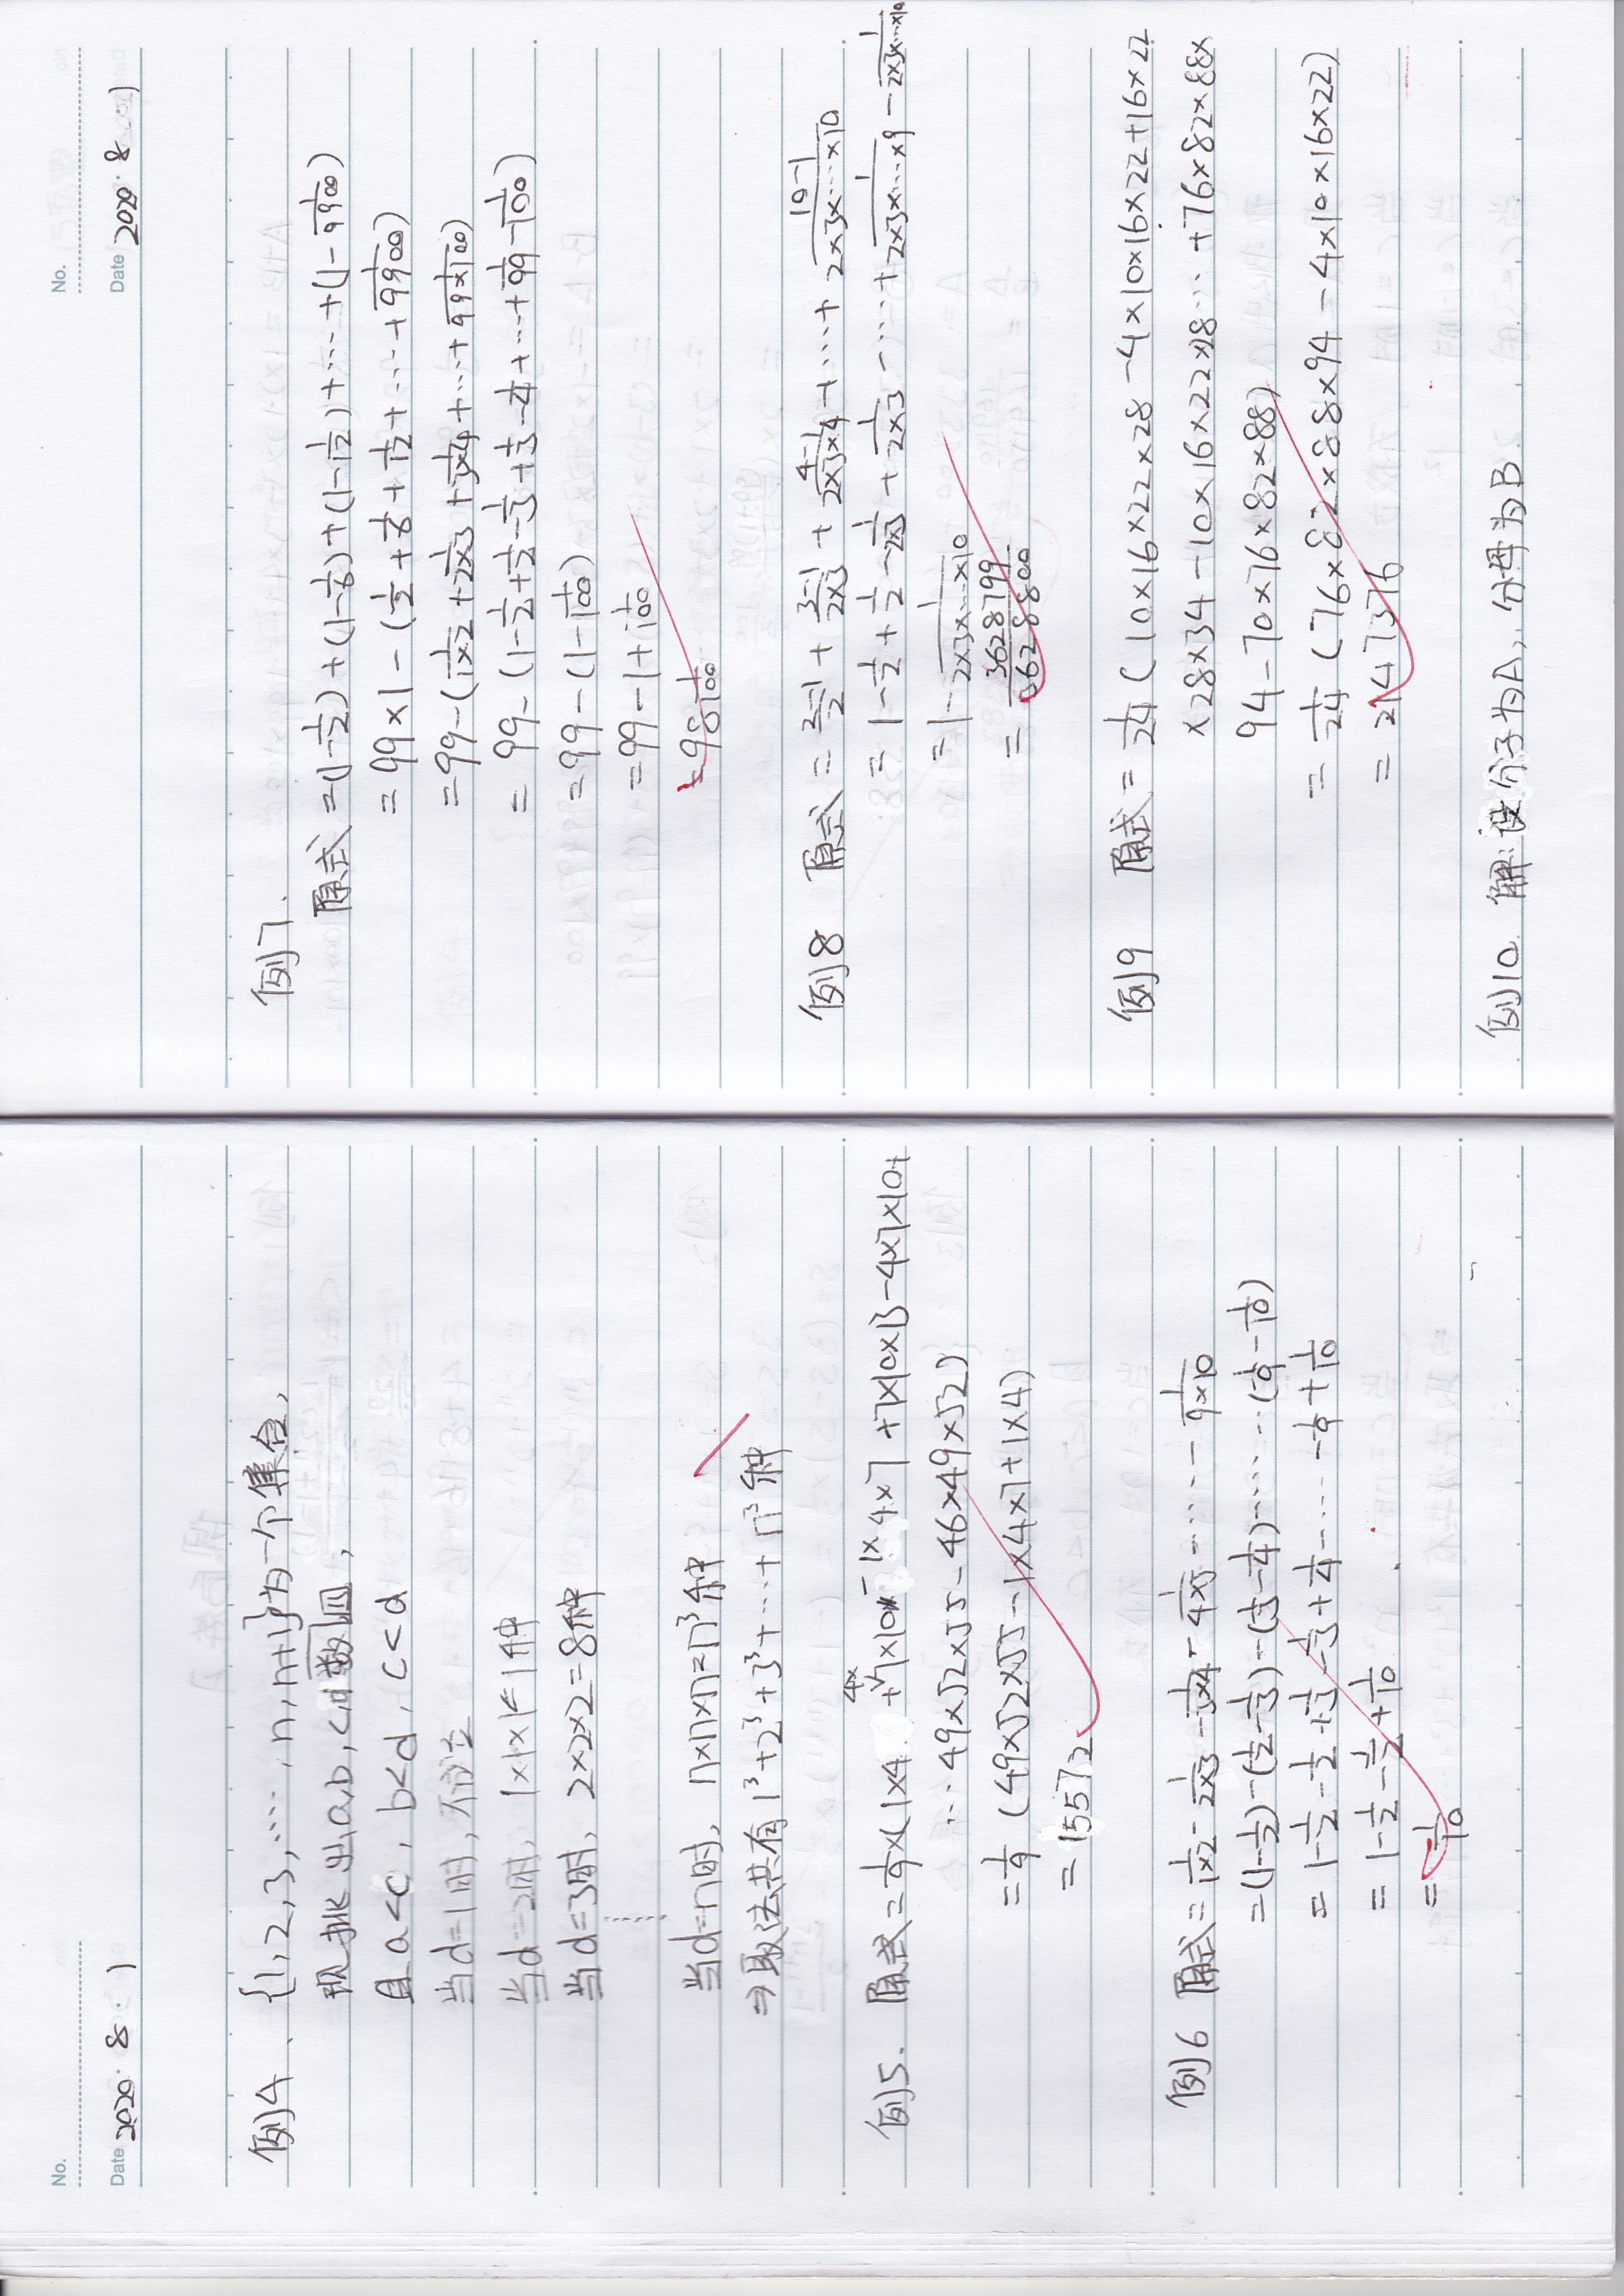 No.
Date 2020. 8. )
例4、{1,2,3,…,n,n+1}为一个集合,
现挑出a,b,c,d四数,
且a<c, b<d, c<d
当d=1时,不成立
当d=2时, 1×1×1=1种
当d=3时, 2×2×2=8种
……
当d=n时, n×n×n=n³种
⇒取法共有1³+2³+3³+…+n³种
例5. 原式=1/9×(1×4×7×10-1×4×7+7×10×13-4×7×10+
…49×52×55-46×49×52)
=1/9(49×52×55-1×4×7+1×4)
=15572
例6 原式=1/1×2-1/2×3-1/3×4-1/4×5-……-1/9×10
=(1-1/2)-(1/2-1/3)-(1/3-1/4)-……(1/9-1/10)
=1-1/2-1/2+1/3-1/3+1/4-……-1/9+1/10
=1-1/2-1/2+1/10
=1/10
No.
Date 2020. 8. )
例7.
原式=(1-1/2)+(1-1/6)+(1-1/12)+…+(1-1/9900)
=99×1-(1/2+1/6+1/12+…+1/9900)
=99-(1/1×2+1/2×3+1/3×4+…+1/99×100)
=99-(1-1/2+1/2-1/3+1/3-1/4+…+1/99-1/100)
=99-(1-1/100)
=99-1+1/100
=98 1/100
例8 原式=2-1/2+3-1/2×3+4-1/2×3×4+…+10-1/2×3×…×10
=1-1/2+1/2-1/2×3+1/2×3-…+1/2×3×…×9-1/2×3×…×10
=1-1/2×3×…×10
=3628799/3628800
例9 原式=1/24(10×16×22×28-4×10×16×22+16×22
×28×34-10×16×22×28…+76×82×88×
94-70×76×82×88)
=1/24(76×82×88×94-4×10×16×22)
=2147376
例10. 解:设分子为A,分母为B.